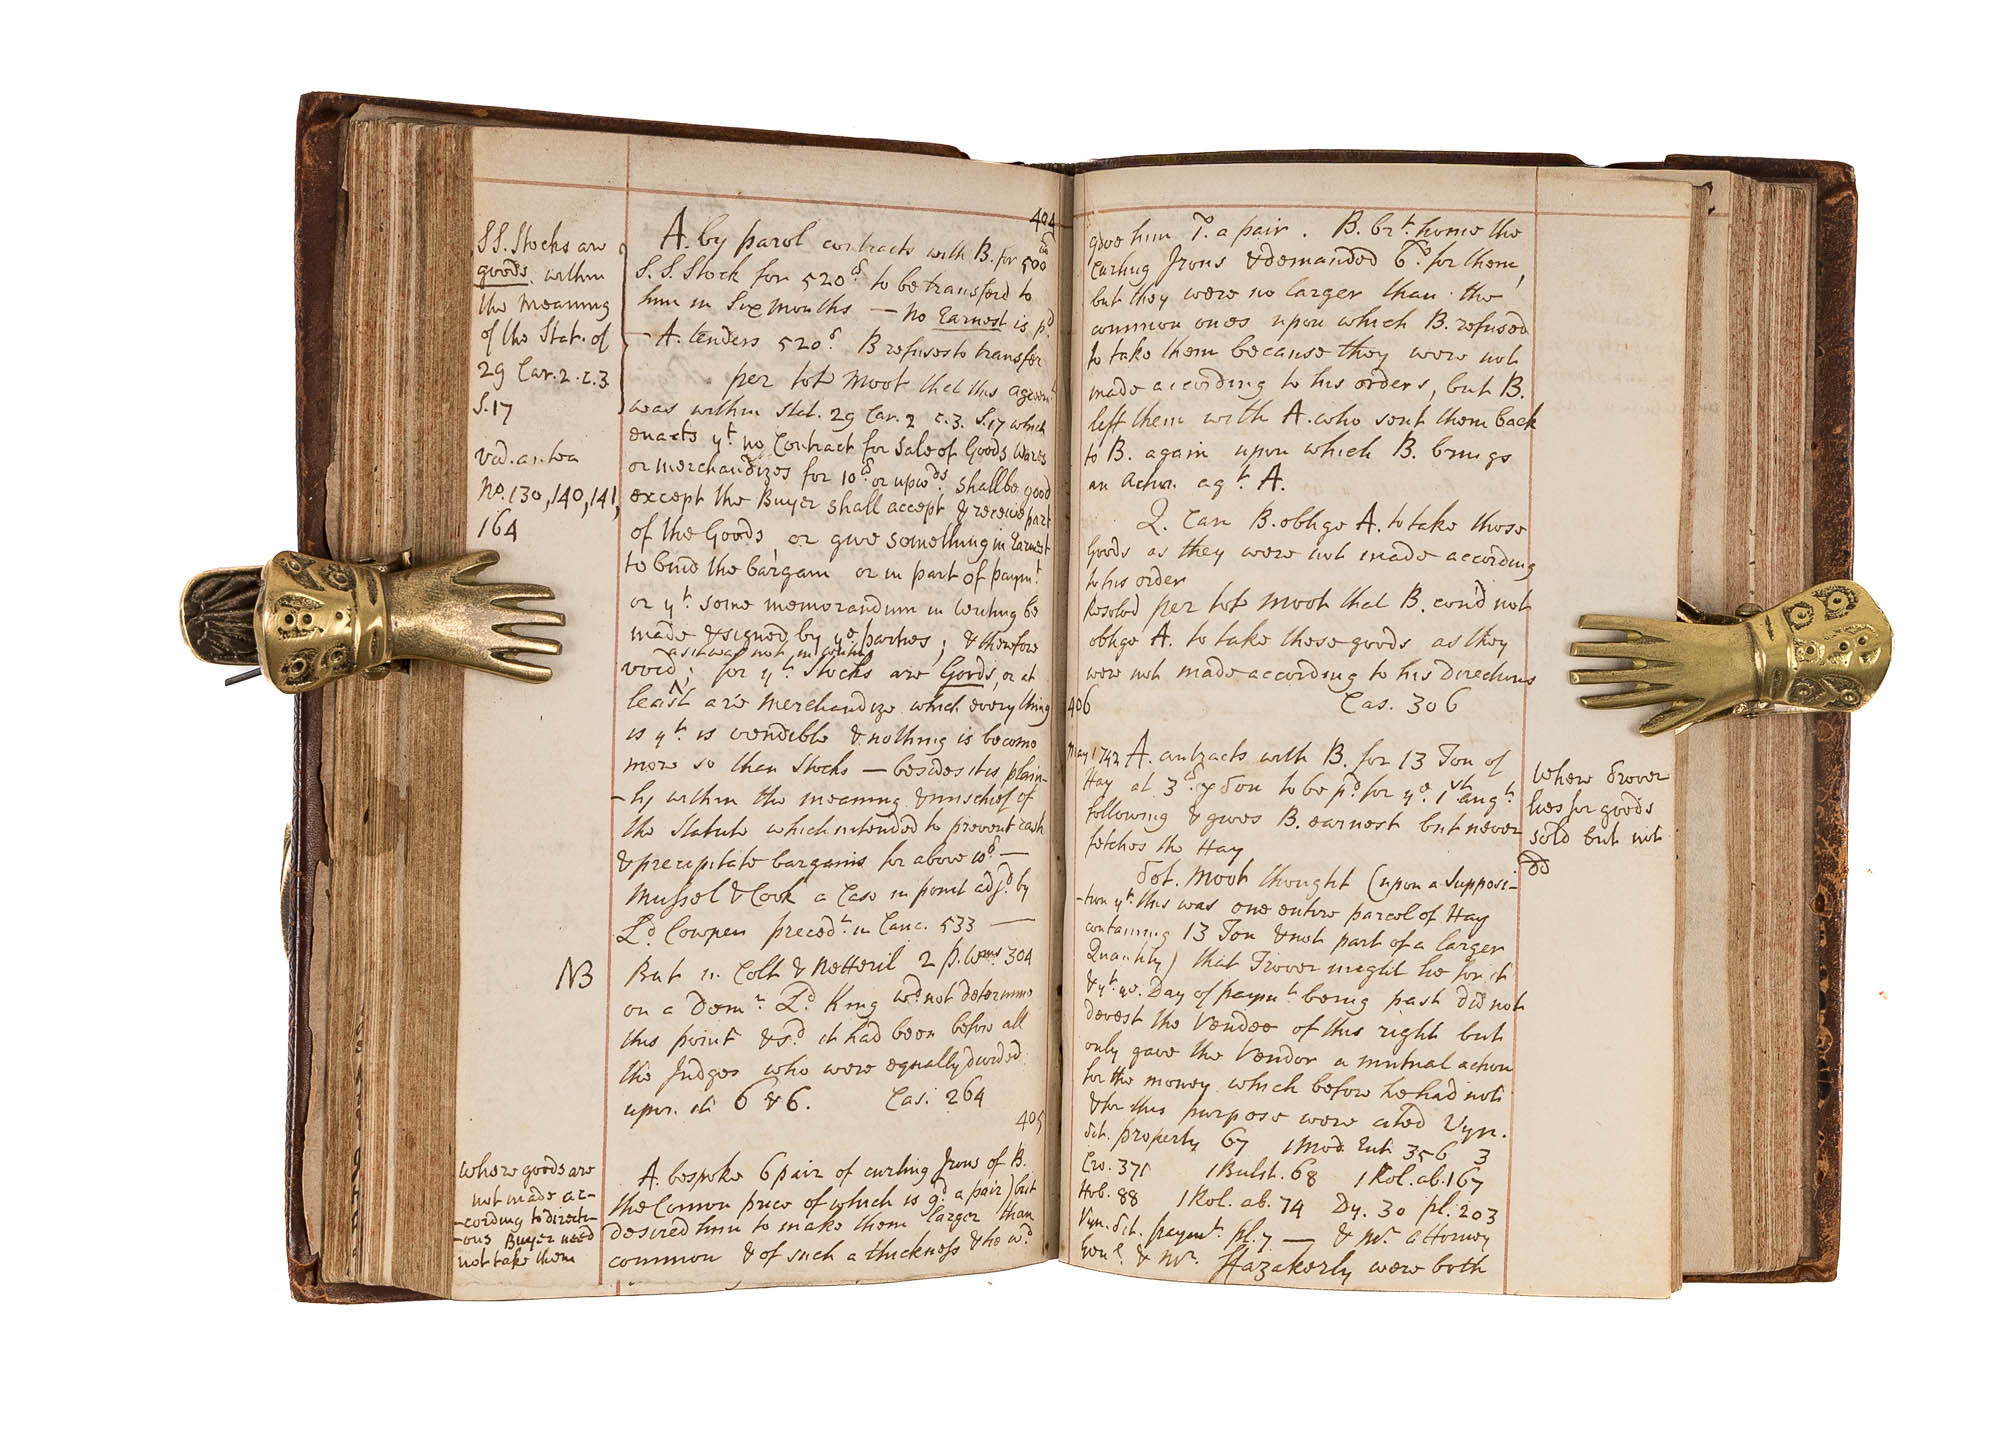 404
SS. Stocks are
goods within
the meaning
of the Stat. of
29 Car. 2. c. 3
S. 17
Vid. antea
No. 130, 140, 141,
164
A. by parol contracts with B. for 500
S. S. Stock for 520£ to be transferd to
him in Six months — No Earnest is pd
— A. tenders 520£ B refuses to transfer
per tot Moot that this agreemt
was within Stat. 29 Car. 2 c. 3. S. 17 which
enacts yt no Contract for Sale of Goods, Wares
or Merchandizes for 10£ or upwds shall be good
except the Buyer shall accept & receive part
of the Goods, or give something in Earnest
to bind the bargain or in part of paymt
or yt some memorandum in writing be
made & signed by ye parties; & therefore
as it was not in writing
void; for yt Stocks are Goods, or at
least are Merchandize which every thing
is yt is vendible & nothing is become
more so than Stocks — besides it is plain-
-ly within the meaning & mischief of
the Statute which intended to prevent rash
& precipitate bargains for above 10£ —
Mussel & Cook a Case in point adjd by
Ld Cowper precedts in Canc. 533 —
NB
But in Colt & Netteril 2 P. Wms 304
on a Demr Ld King wd not determine
this point & sd it had been before all
the Judges who were equally divided
upon it 6 & 6. Cas. 264
405
where goods are
not made ac-
-cording to directi-
-ons Buyer need
not take them
A. bespoke 6 pair of curling Irons of B.
the Comon price of which is 9d a pair) but
desired him to make them larger than
common & of such a thickness & he wd
give him a pair. B. brt home the
Curling Irons & demanded 6s for them,
but they were no larger than the
common ones upon which B. refused
to take them because they were not
made according to his orders, but B.
left them with A. who sent them back
to B. again upon which B. brings
an Action agt A.
Q. Can B. oblige A. to take these
Goods as they were not made according
to his order
Resolvd per tot Moot that B. coud not
oblige A. to take these goods as they
were not made according to his Directions
406 Cas. 306
May 1742 A. contracts with B. for 13 Ton of
Hay at 3£ p Ton to be pd for ye 1st Augt
following & gives B. earnest but never
fetches the Hay
where Trover
lies for goods
sold but not
dd
Tot. Moot thought (upon a Supposi-
-tion yt this was one entire parcel of Hay
containing 13 Ton & not part of a larger
Quantity) that Trover might lie for it
& yt ye Day of paymt being past did not
devest the Vendee of this right but
only gave the Vendor a mutual action
for the money which before he had not
& for this purpose were cited Vyn.
tit. property 67 1 Mod. Ent. 356 3
Cro. 371 1 Bulst. 68 1 Rol. ab. 167
Hob. 88 1 Rol. ab. 74 Dy. 30 pl. 203
Vyn. tit. paymt pl. 7 — & Mr Attorney
Genl & Mr Fazakerly were both